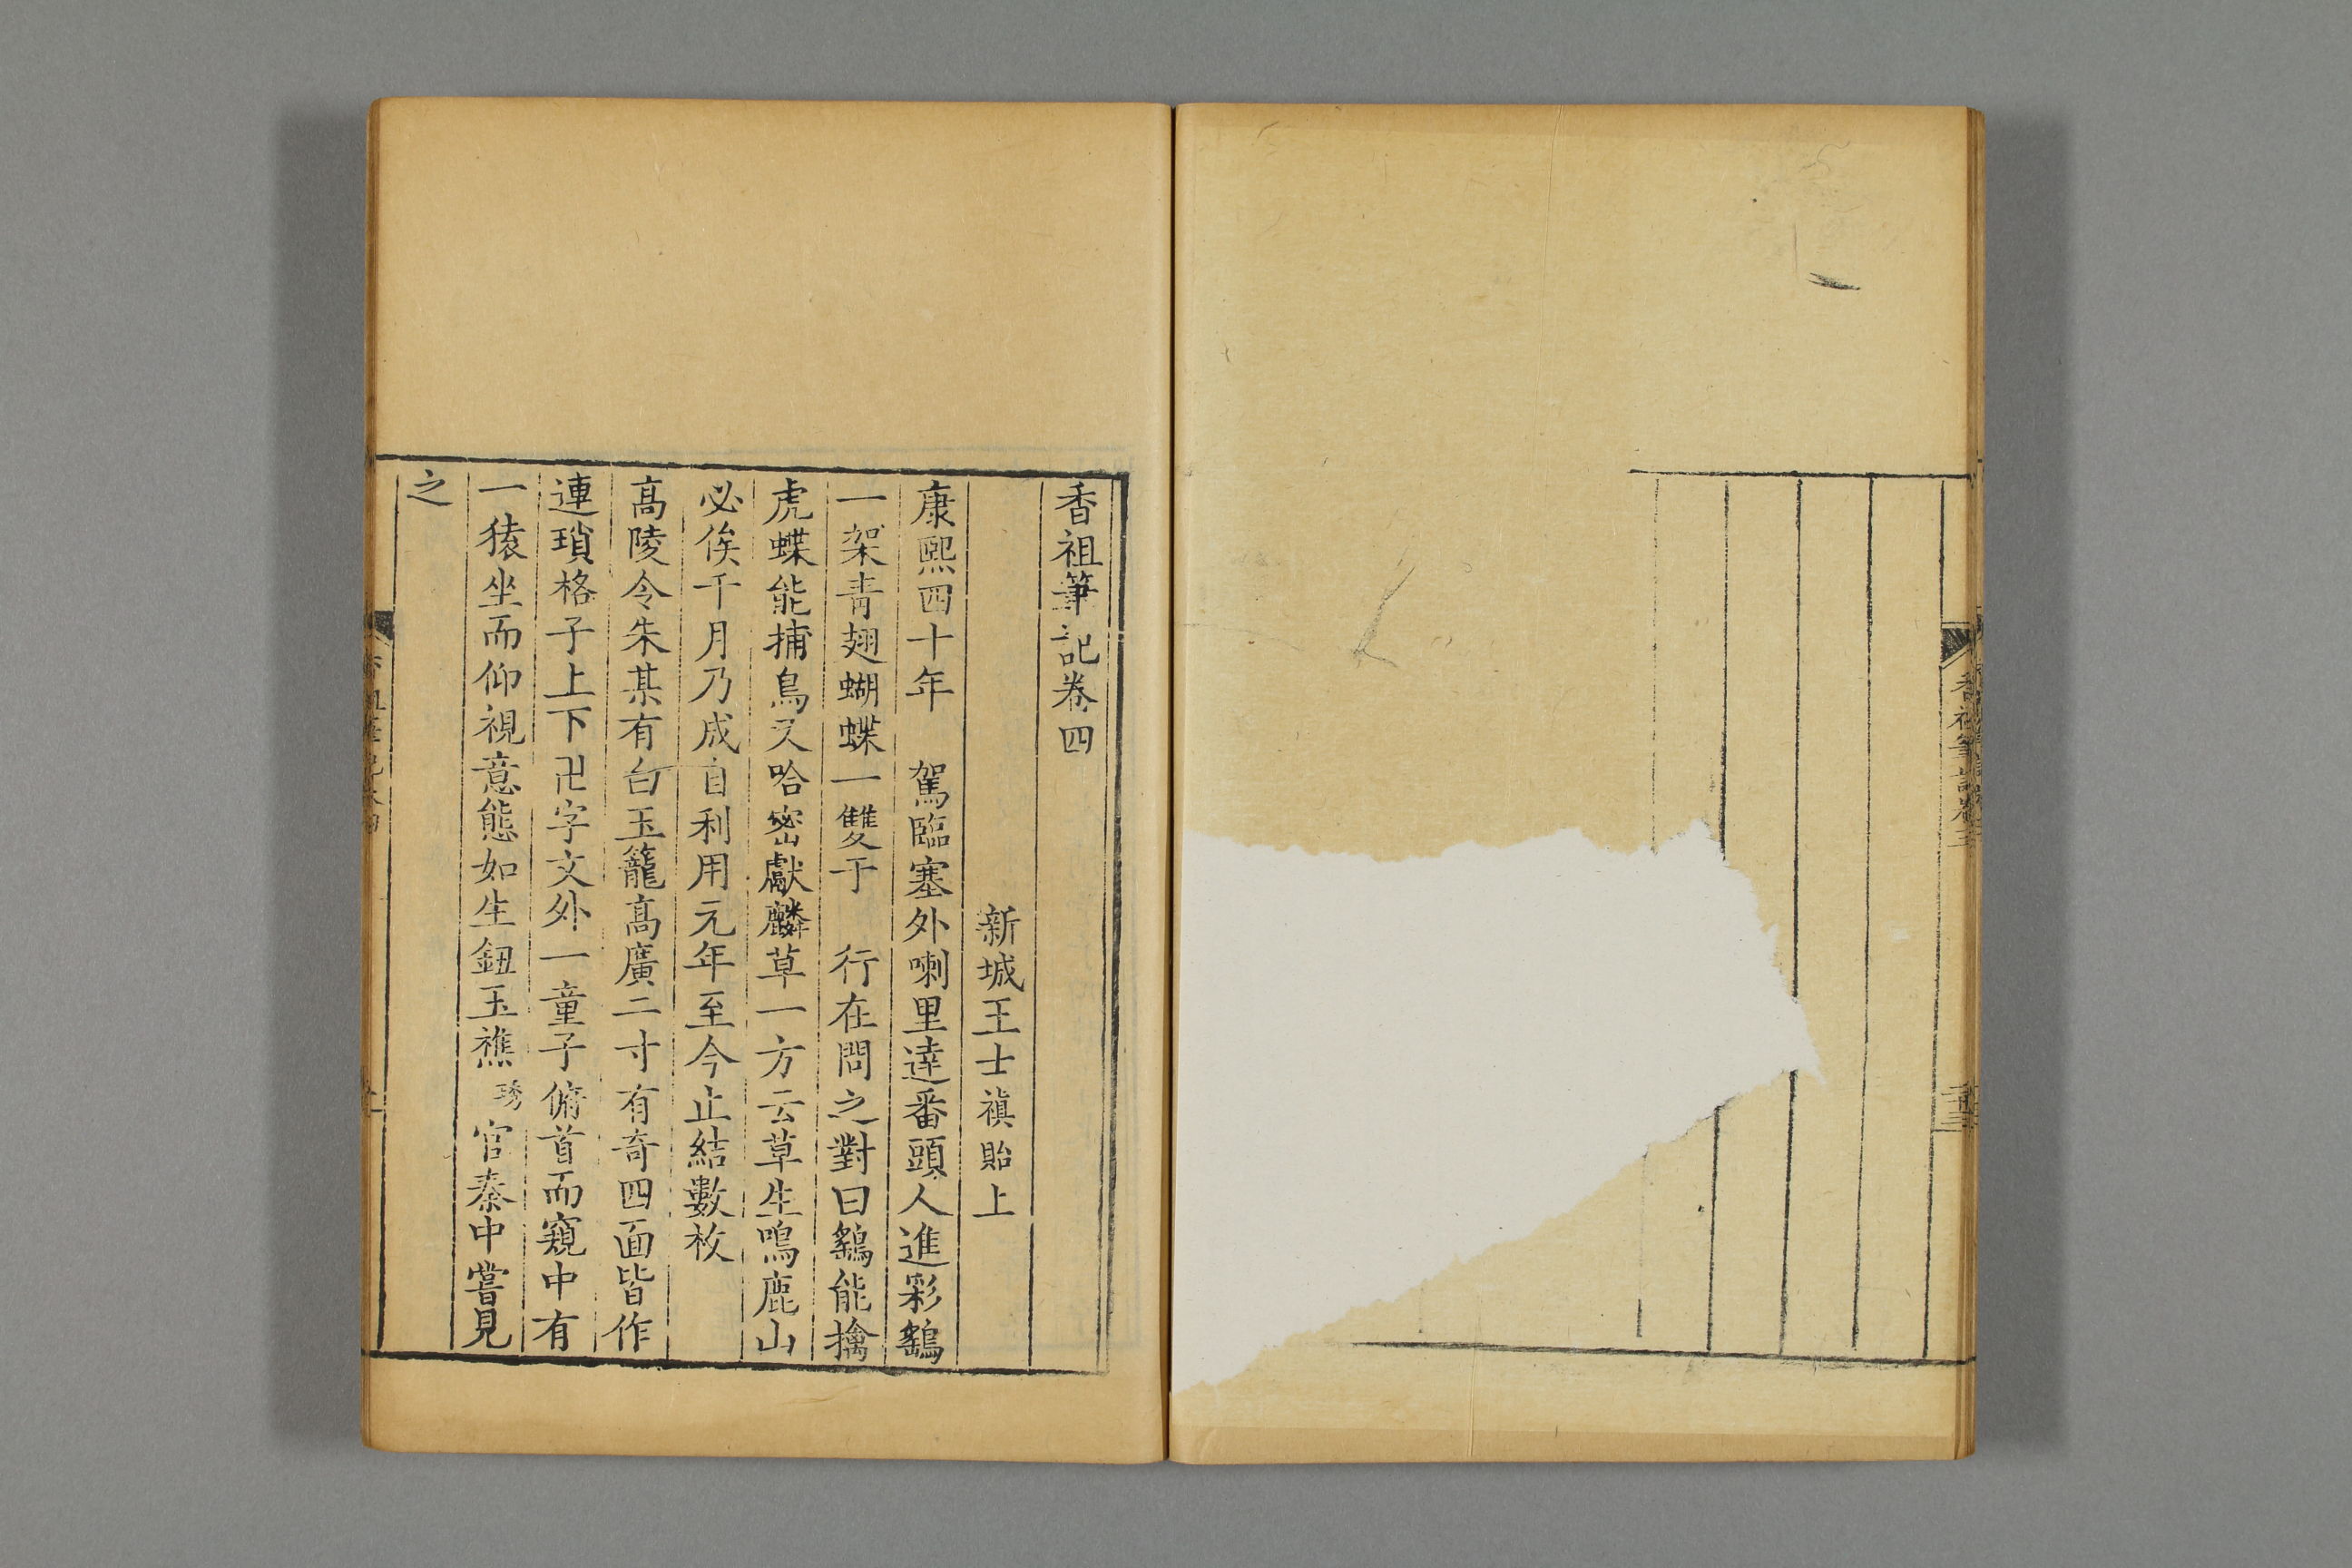 香祖筆記卷三
香祖筆記卷四
新城王士禛貽上
康熙四十年　駕臨塞外喇里達番頭人進彩鷂
一架青翅蝴蝶一雙于　行在問之對曰鷂能擒
虎蝶能捕鳥又哈密獻麟草一方云草生鳴鹿山
必俟千月乃成自利用元年至今止結數枚
高陵令朱某有白玉籠高廣二寸有奇四面皆作
連瑣格子上下卍字文外一童子俯首而窺中有
一猿坐而仰視意態如生鈕玉樵琇官秦中嘗見
之